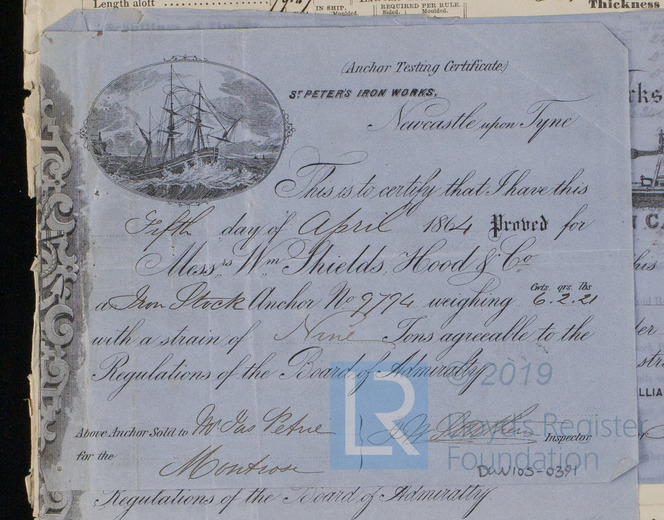 Length aloft
IN SHIP.
Moulded.
REQUIRED PER RULE.
Sided. Moulded.
Thickness
(Anchor Testing Certificate)
ST PETER'S IRON WORKS.
Newcastle upon Tyne
This is to certify that I have this
Fifth day of April 1864 Proved for
Messrs Wm Shields, Hood & Co
Cwts. qrs. lbs
a Iron Stock Anchor No 9794 weighing 6.2.21
with a strain of Nine Tons agreeable to the
Regulations of the Board of Admiralty
© 2019
LR
Lloyd's Register
Foundation
Above Anchor Sold to Mr Jas Petrie
Inspector
for the Montrose
DUN105-0391
Regulations of the Board of Admiralty